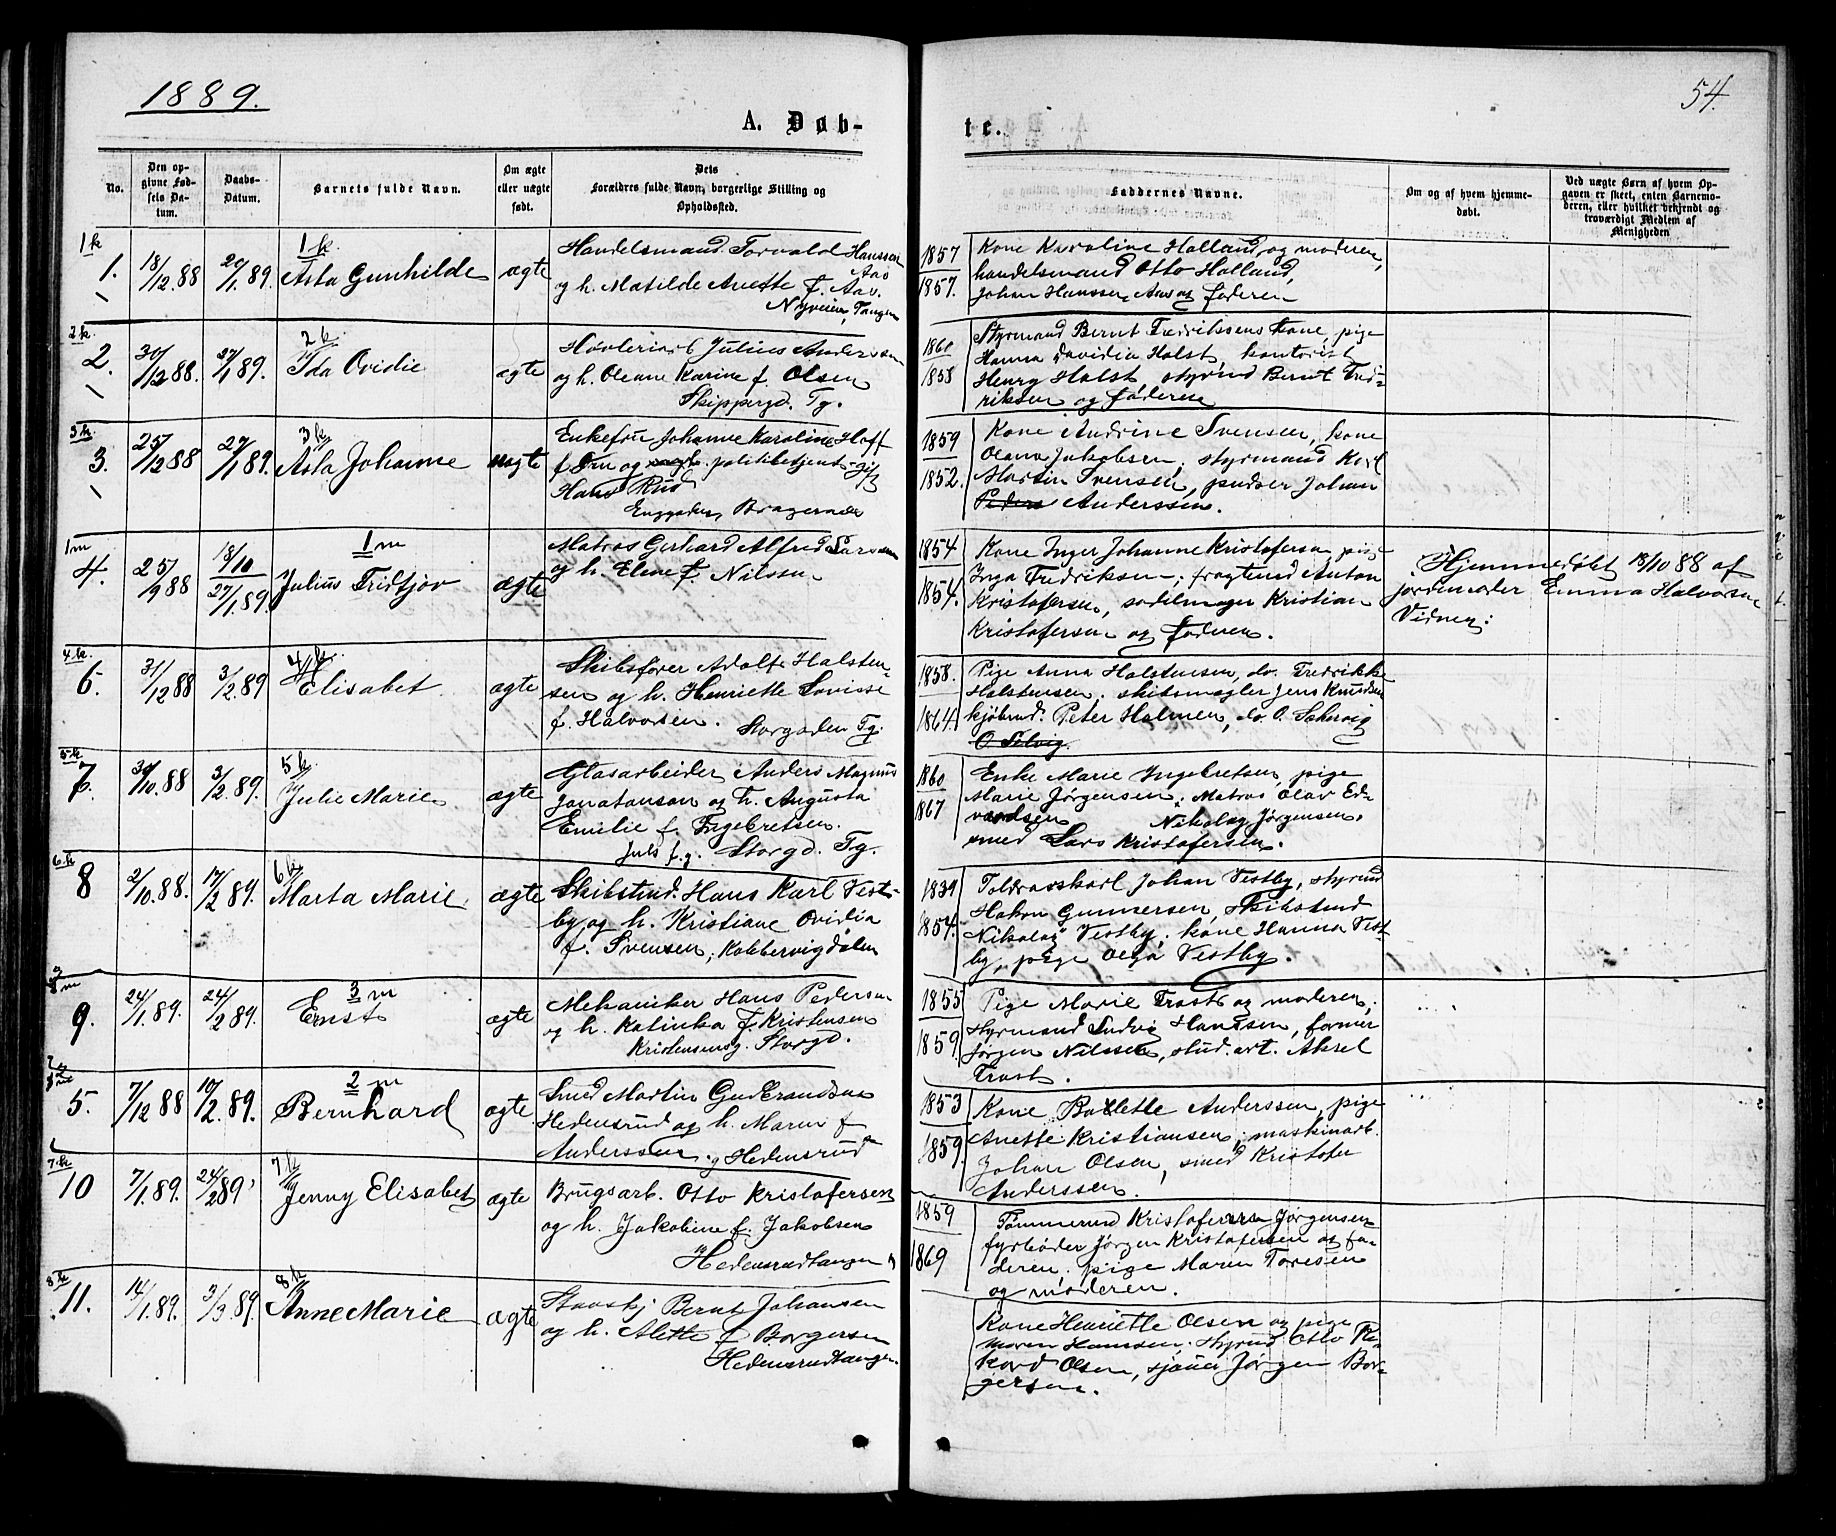 1889.
54.
A. Døb-
te.
No.
Den opgivne Fødsels Datum.
Daabs-Datum.
Barnets fulde Navn.
Om ægte eller uægte født.
Dets Forældres fulde Navn, borgerlige Stilling og Opholdssted.
Faddernes Navne.
Om og af hvem hjemmedøbt.
Ved uægte Børn af hvem Opgaven er skeet, enten Barnemoderen, eller hvilket bekjendt og troværdigt Medlem af Menigheden
1 k
1.
18/12 88
20/1 89.
1 k.
Asta Gunhilde
ægte
Handelsmand Torvald Hanssen
Aas
og h. Matilde Anette f. Aav.
Nyveien, Tangen
1857
1857.
Kone Karoline Holland, og moderen,
handelsmand Otto Holland,
Johan Hanssen Aas og faderen
2 k.
2.
30/12 88.
27/1 89.
2 k
Ida Ovidie
ægte
Høvleriarb Julius Andersen
og h. Oleane Karine f. Olsen
Skippergd. Tg.
1860
1858
Styrmand Bernt Fredriksens kone, pige
Hanna Davidia Holst, kontorist
Henry Holst, styrmd Bernt Fred-
riksen og faderen
3 k.
3.
25/12 88
27/1 89.
3 k
Asta Johanne
uægte
Enkefru Johanne Karoline Hoff
f. Dru og politibetjent gift
Hans Rud
Enggaden, Bragernæs
1859
1852.
Kone Andrine Svensen, kone
Olava Jakobsen, styrmand Karl
Martin Svensen, pudser Johan
Peders Anderssen.
1 m
4.
25/9 88
18/10
27/1 89
1 m
Julius Fridtjov
ægte
Matros Gerhard Alfred Larsen
og h. Elene f. Nilssen
1854
1854.
Kone Inger Johanne Kristofersen pige
Inga Fredriksen, fragtmd Anton
Kristofersen, sadelmager Kristian
Kristofersen og faderen.
Hjemmedøbt 18/10 88 af
jordemoder Emma Halvorsen
Vidner:
4 k.
6.
31/12 88
3/2 89
4 k.
Elisabet
ægte
Skibsfører Adolf Halsten-
sen og h. Henriette Lovisse
f. Halvorsen.
Storgaden Tg.
1858.
1864
Pige Anna Halstensen, do. Fredrikke
Halstensen. skibsmægler Jens Knudsen
kjøbmd. Peter Holmen, do O. Solvig
O Selvig.
5 k
7.
30/10 88
3/2 89.
5 k.
Julie Marie
ægte
Glasarbeider Anders Magnus
Jonatanson og h. Augusta
Emilie f. Ingebretsen.
Juls f.g. Storgd. Tg.
1860
1867
Enke Marie Ingebretsen, pige
Marie Jørgensen. Matros Olav Ed-
vardsen Nikolay Jørgensen,
smed Lars Kristofersen.
6. k
8
2/10 88.
17/2 89.
6 k
Marta Marie
ægte
Skibstmd. Hans Karl Vest-
by og h. Kristiane Ovidia
f. Svensen, Kobbervigdalen
1839
1854.
Toldrorskarl Johan Vestby, styrmd
Hakon Gunnersen, skibstmd
Nikolay Vestby, kone Hanna Vest-
by, pige Olga Vestby.
9.
24/1 89.
24/2 89.
3 m
Ernst
ægte
Mekaniker Hans Pedersen
og h. Katinka f. Kristensen
Kristensensg. Storgd.
1855
1859
Pige Marie Trast og moderen,
styrmand Ludvig Hanssen, former
Jørgen Nilssen, stud. art. Aksel
Trast.
5.
7/12 88
10/2 89.
2 m
Bernhard
ægte
Smed Martin Gudbrandsen
Hedensrud og h. Maren f
Anderssen. g Hedensrud
1853
1859.
Kone Bollette Anderssen, pige
Anette Kristiansen, maskinarb.
Johan Olsen, smed Kristofer
Anderssen.
7. k
10
7/1 89.
24/2 89
7 k
Jenny Elisabet
ægte
Brugsarb. Otto Kristofersen
og h. Jakobine f. Jakobsen
Hedensrudtangen
1859
1869
Tømmermd Kristofer Jørgensen
fyrbøder Jørgen Kristofersen og fa-
deren. pige Maren Toresen
og moderen.
8 k
11.
14/1 89.
3/3 89.
8 k
Anne Marie
ægte
Bernt Johansen
og h. Alette f. Borgersen
Hedensrudtangen
Kone Henriette Olsen og pige
Maren Hanssen. Styrmd Otto Ri-
kard Olsen, sjauer Jørgen Bor-
gersen.